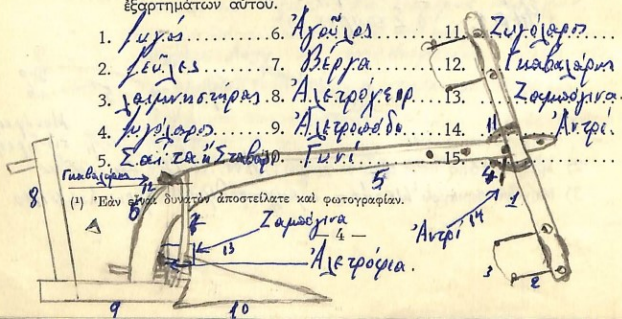 ἐξαρτημάτων αὐτοῦ.
1. Ζυγός 6. Ἀγοῦλος 11. Ζυγόλαρος
2. Ζεῦλες 7. Βέργα 12. Γκαβαλάρης
3. λαιμνηστήρας 8. Ἀλετρόχειρ 13. Ζαμπόγινα
4. Ζυγόλαρος 9. Ἀλετροπόδι 14. Ἀντρί.
5. Σαΐτα ἢ Σταβάρ 10. Γυνί 15
Γκαβαλάρης
(¹) Ἐὰν εἶναι δυνατὸν ἀποστείλατε καὶ φωτογραφίαν.
Ζαμπόγινα
— 4 —
Ἀντρί
Ἀλετρόφια.
8
12
6
7
13
5
11
4
14
1
3
2
9
10